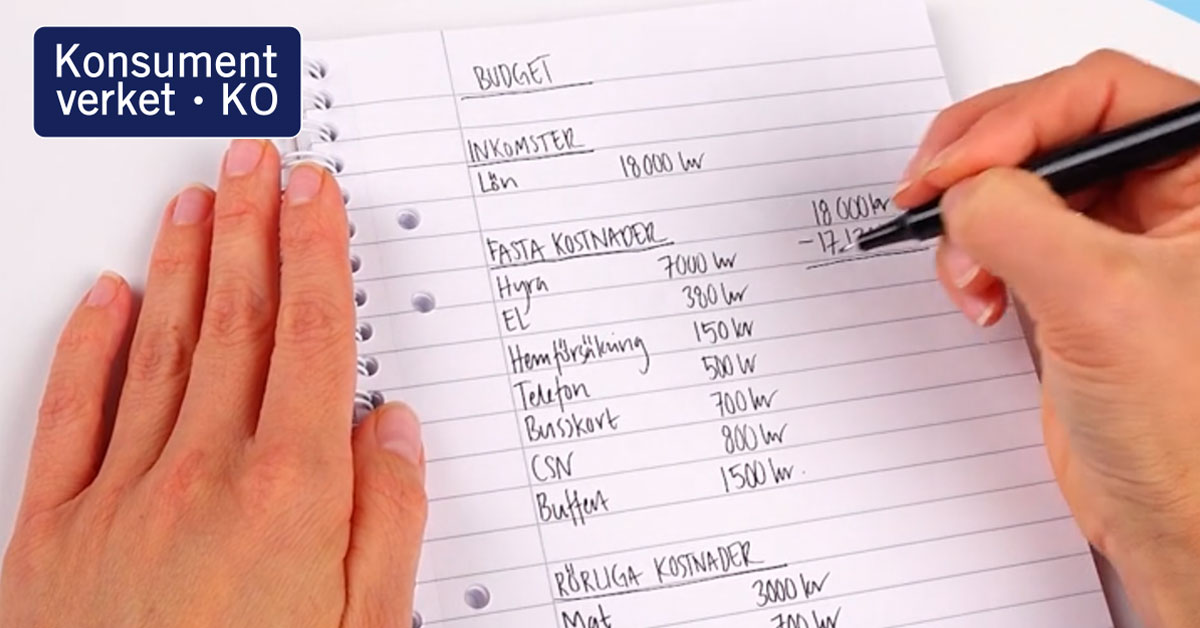 Konsument
verket • KO
BUDGET
INKOMSTER
Lön 18000 kr
18 000 kr
FASTA KOSTNADER
Hyra 7000 kr
EL 380 kr
Hemförsäkring 150 kr
Telefon 500 kr
Busskort 700 kr
CSN 800 kr
Buffert 1500 kr.
RÖRLIGA KOSTNADER
Mat 3000 kr
700 kr